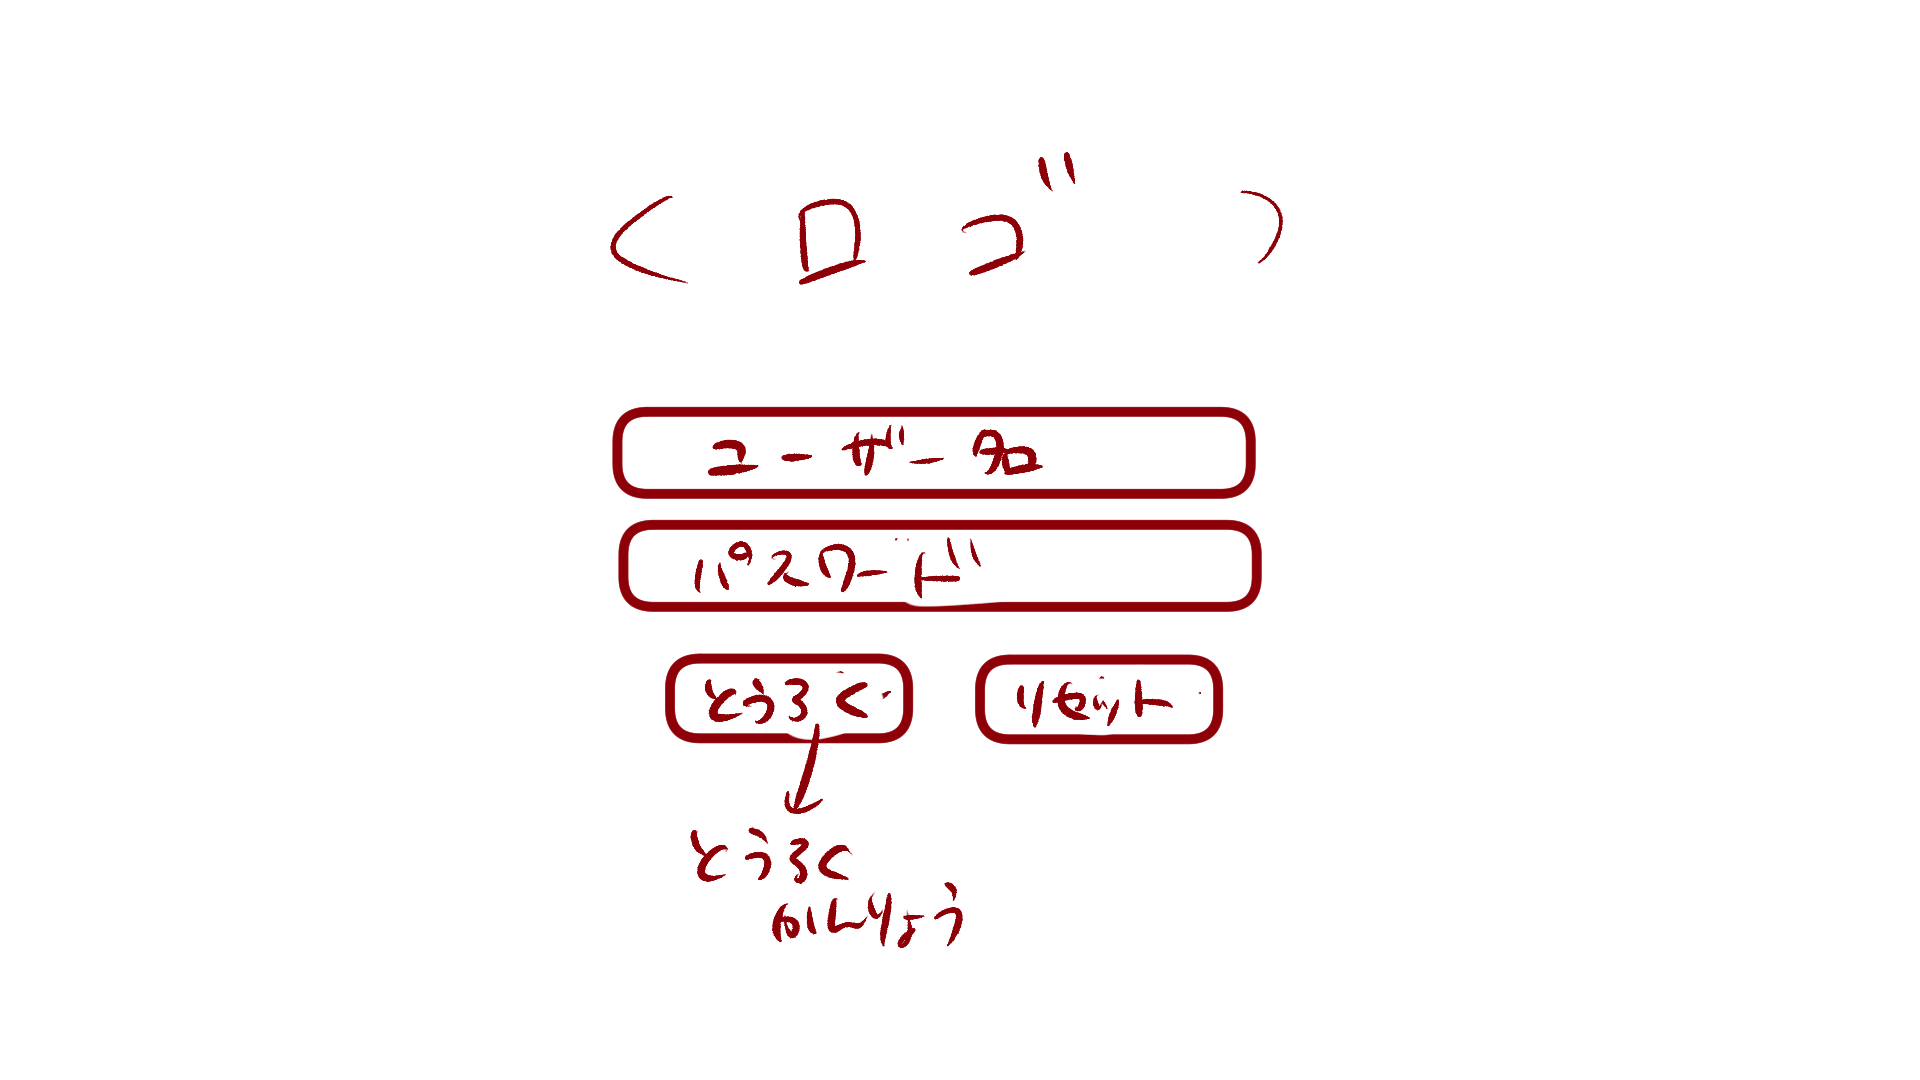 < ロゴ )
ユーザー名
パスワード
とうろく
リセット
とうろく
かんりょう